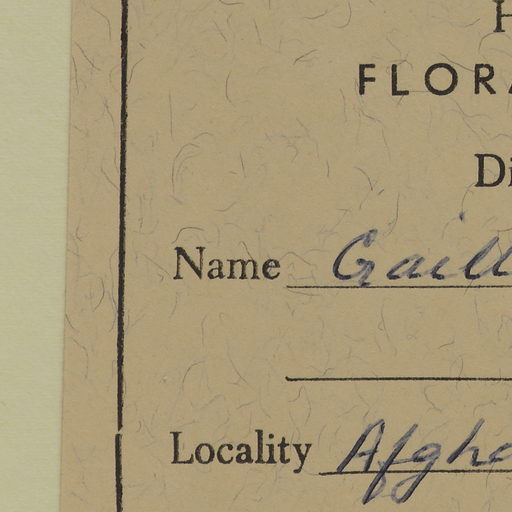 H
FLORA
Di
Name Gaill
Locality Afgha